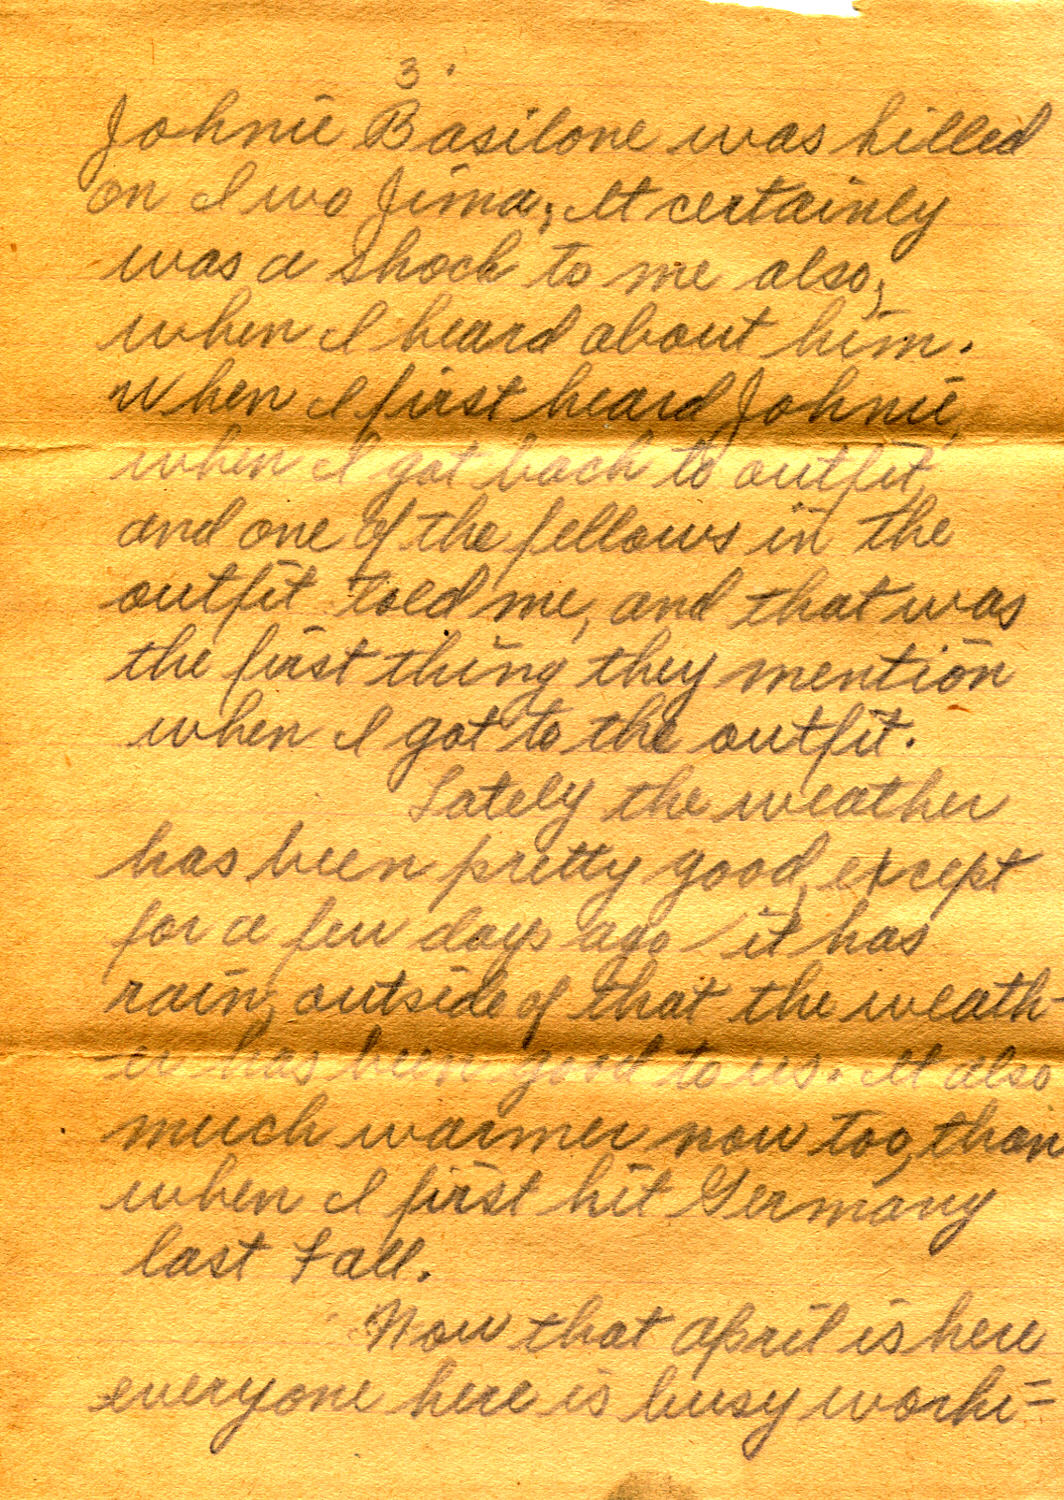 3.
Johnie Basilone was killed
on Iwo Jima; It certainly
was a shock to me also;
when I heard about him.
When I first heard Johnie,
when I got back to outfit,
and one of the fellows in the
outfit told me, and that was
the first thing they mention
when I got to the outfit.
Lately the weather
has been pretty good, except
for a few days ago it has
rain, outside of that the weath-
er has been good to us. It also
much warmer now too, than
when I first hit Germany
last Fall.
Now that April is here
everyone here is busy worki=